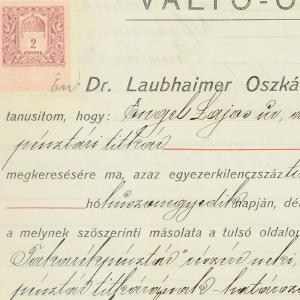 VÁLTÓ-Ó
2
KORONA
Én Dr. Laubhaimer Oszká
tanusitom, hogy: Engel Lajos úr, a
pénztári titkár
megkeresésére ma, azaz egyezerkilenczszázti
hó huszonegyedik napján, dé
a melynek szószerinti másolata a tulsó oldalo
Takarékpénztár" részére neki,
pénztár titkárának - határoz